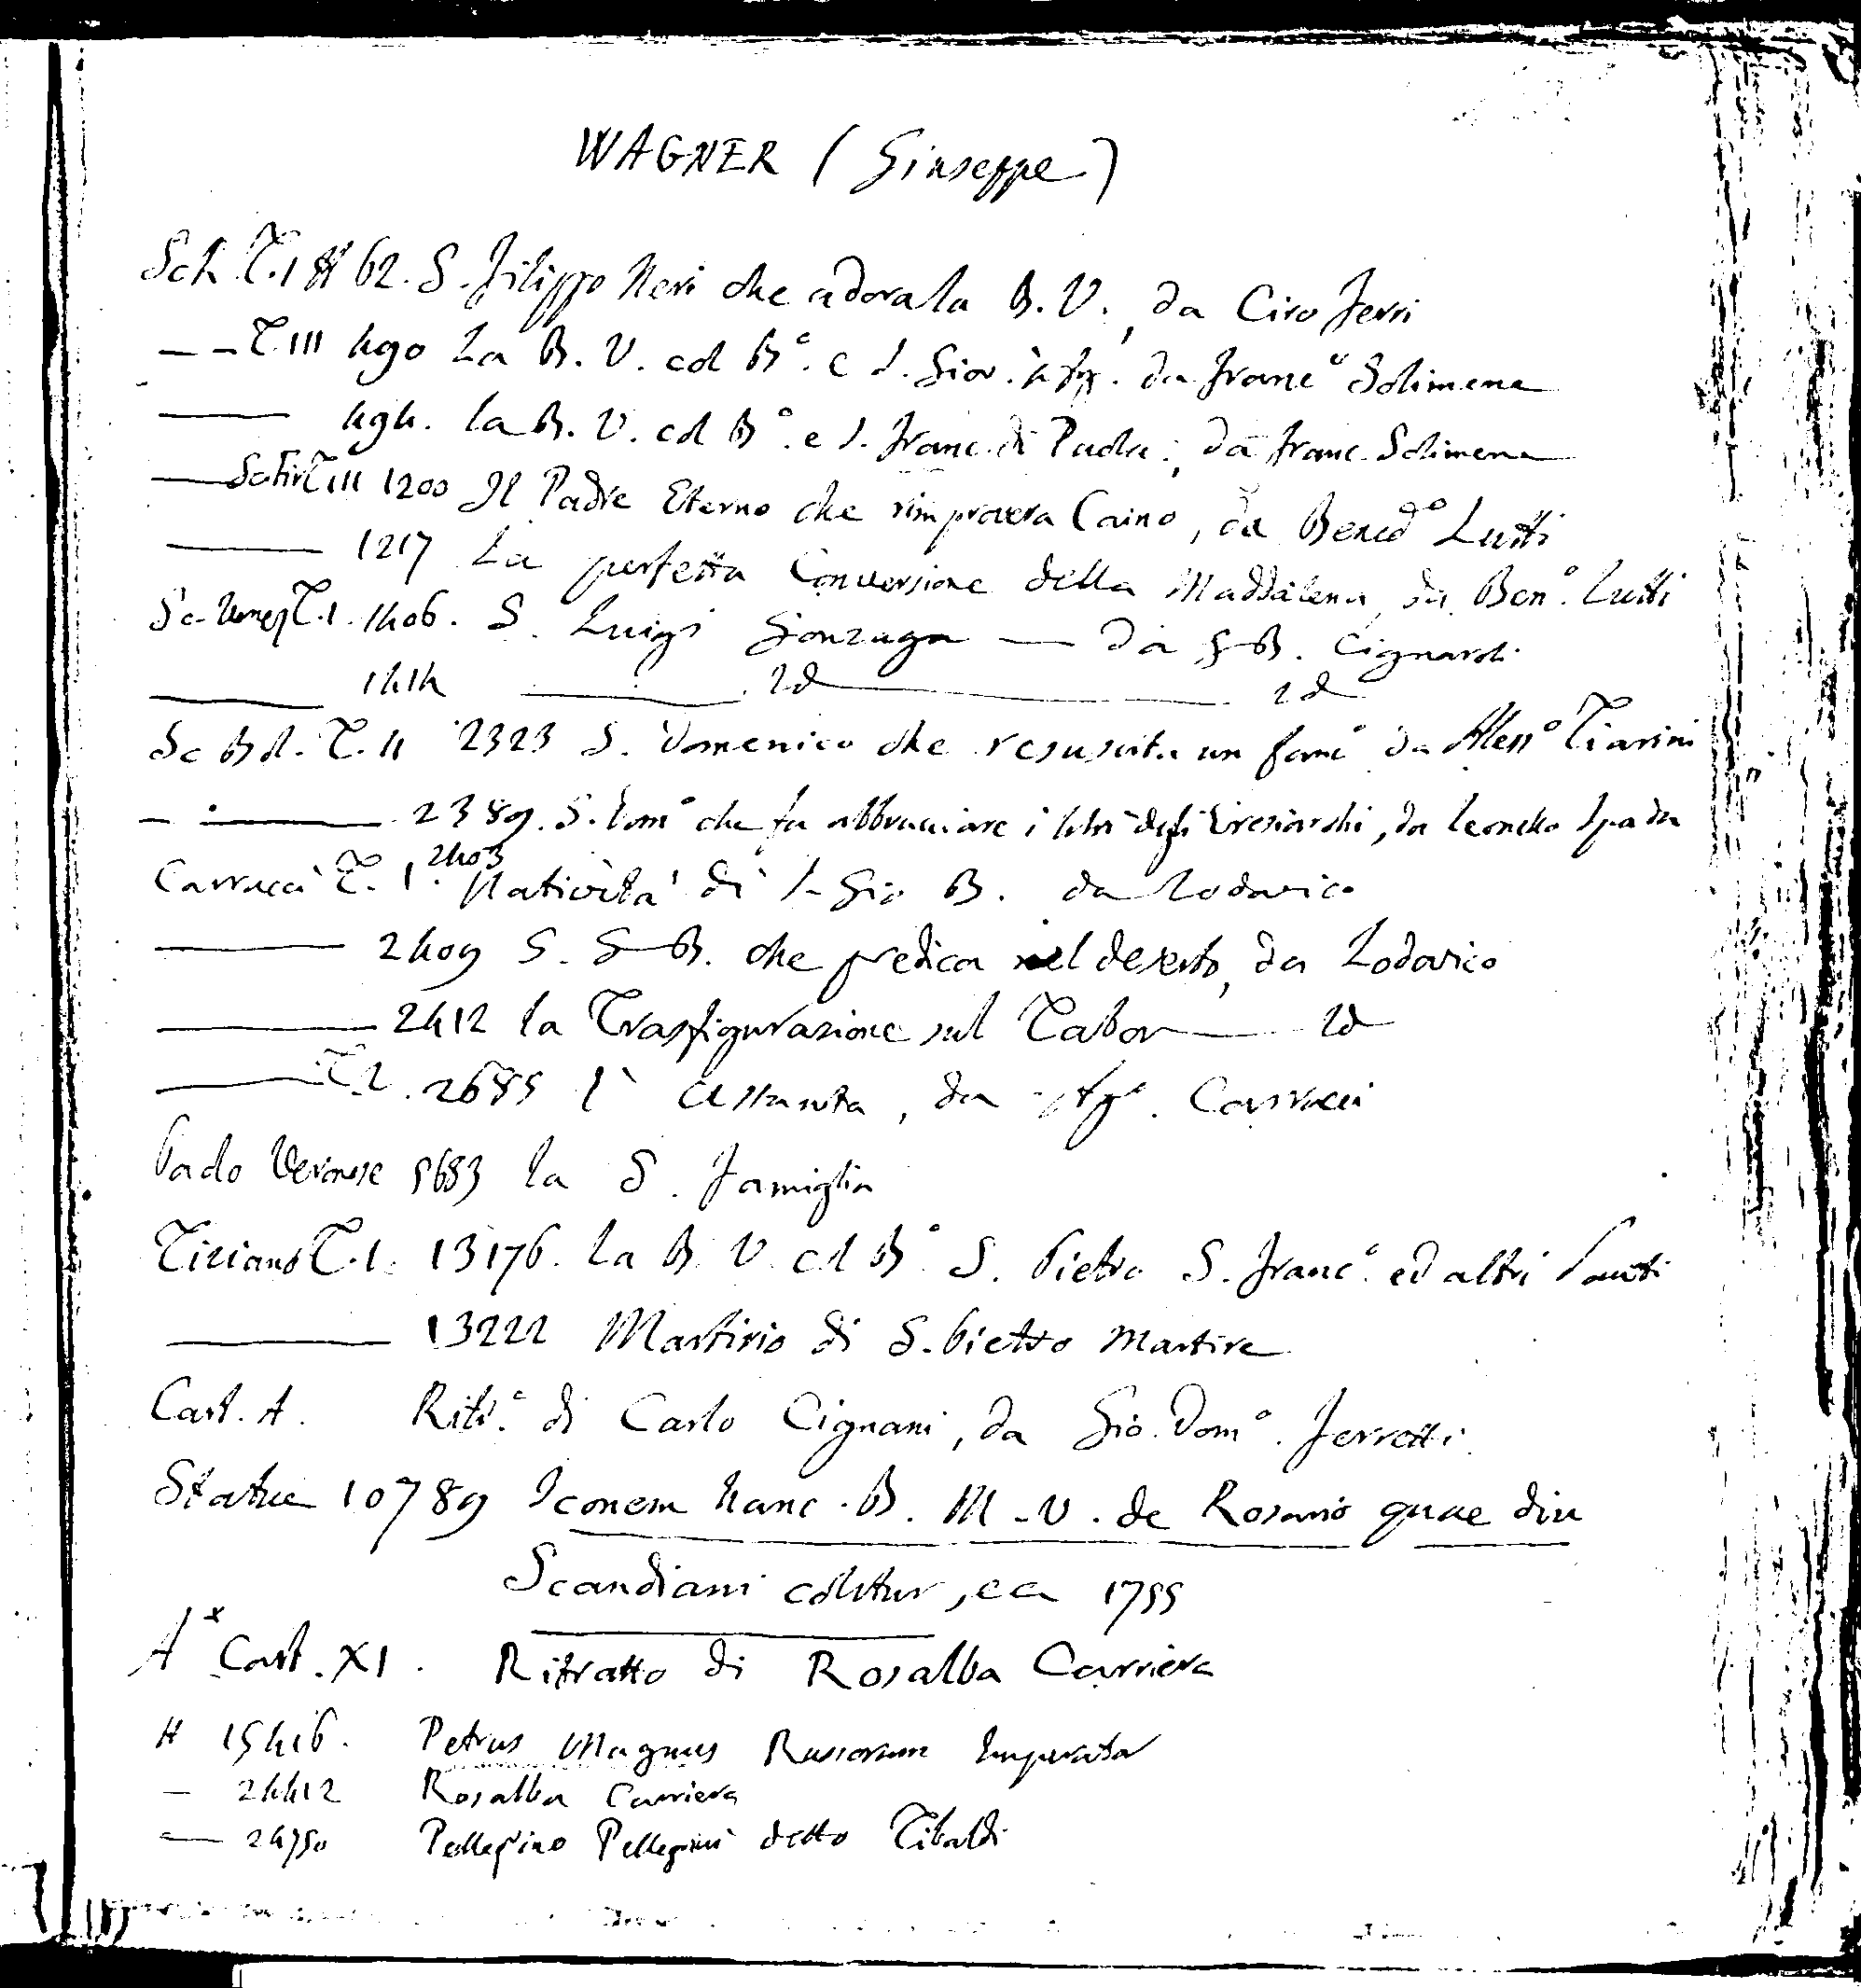 WAGNER (Giuseppe)
Sch. T. I # 62. S. Filippo Neri che adora la B. V., da Ciro Ferri
— — T. III 490 La B. V. col B°. e S. Giov. da Franc° Solimena
—— 494. la B. V. col B°. e S. Franc. di Paola, da Franc. Solimena
— Sc. Fir. T. III 1200 Il Padre Eterno che rimprovera Caino, da Bened° Lutti
—— 1217 La perfetta Conversione della Maddalena, da Ben°. Lutti
Sc. Venez. T. I. 1406. S. Luigi Gonzaga — da G B. Cignaroli
—— 1414 —— Id —— Id
Sc Bol. T. II 2323 S. Domenico che resuscita un fanc° da Aless° Tiarini
— —— 2389. S. Dom° che fa abbruciare i libri degli Eresiarchi, da Leonello Spada
Carracci T. I. 2403 Natività di S. Gio B. da Lodovico
—— 2409 S. G B. che predica nel deserto, da Lodovico
—— 2412 la Trasfigurazione sul Tabor — Id
—— T. 2. 2685 l' Assunta, da Ag°. Carracci
Paolo Veronese 5683 la S. Famiglia
Tiziano T. I. 13176. La B. V. col B° S. Pietro S. Franc°. ed altri Santi
—— 13222 Martirio di S. Pietro Martire
Cart. A. Rit°. di Carlo Cignani, da Gio. Dom°. Ferretti
Statue 10789 Iconem hanc B. M. V. de Rosario quae diu
Scandiani colitur, ea 1755
A* Cart. XI. Ritratto di Rosalba Carriera
# 15416. Petrus Magnus Russorum Imperator
— 24412 Rosalba Carriera
— 24750 Pellegrino Pellegrini detto Tibaldi